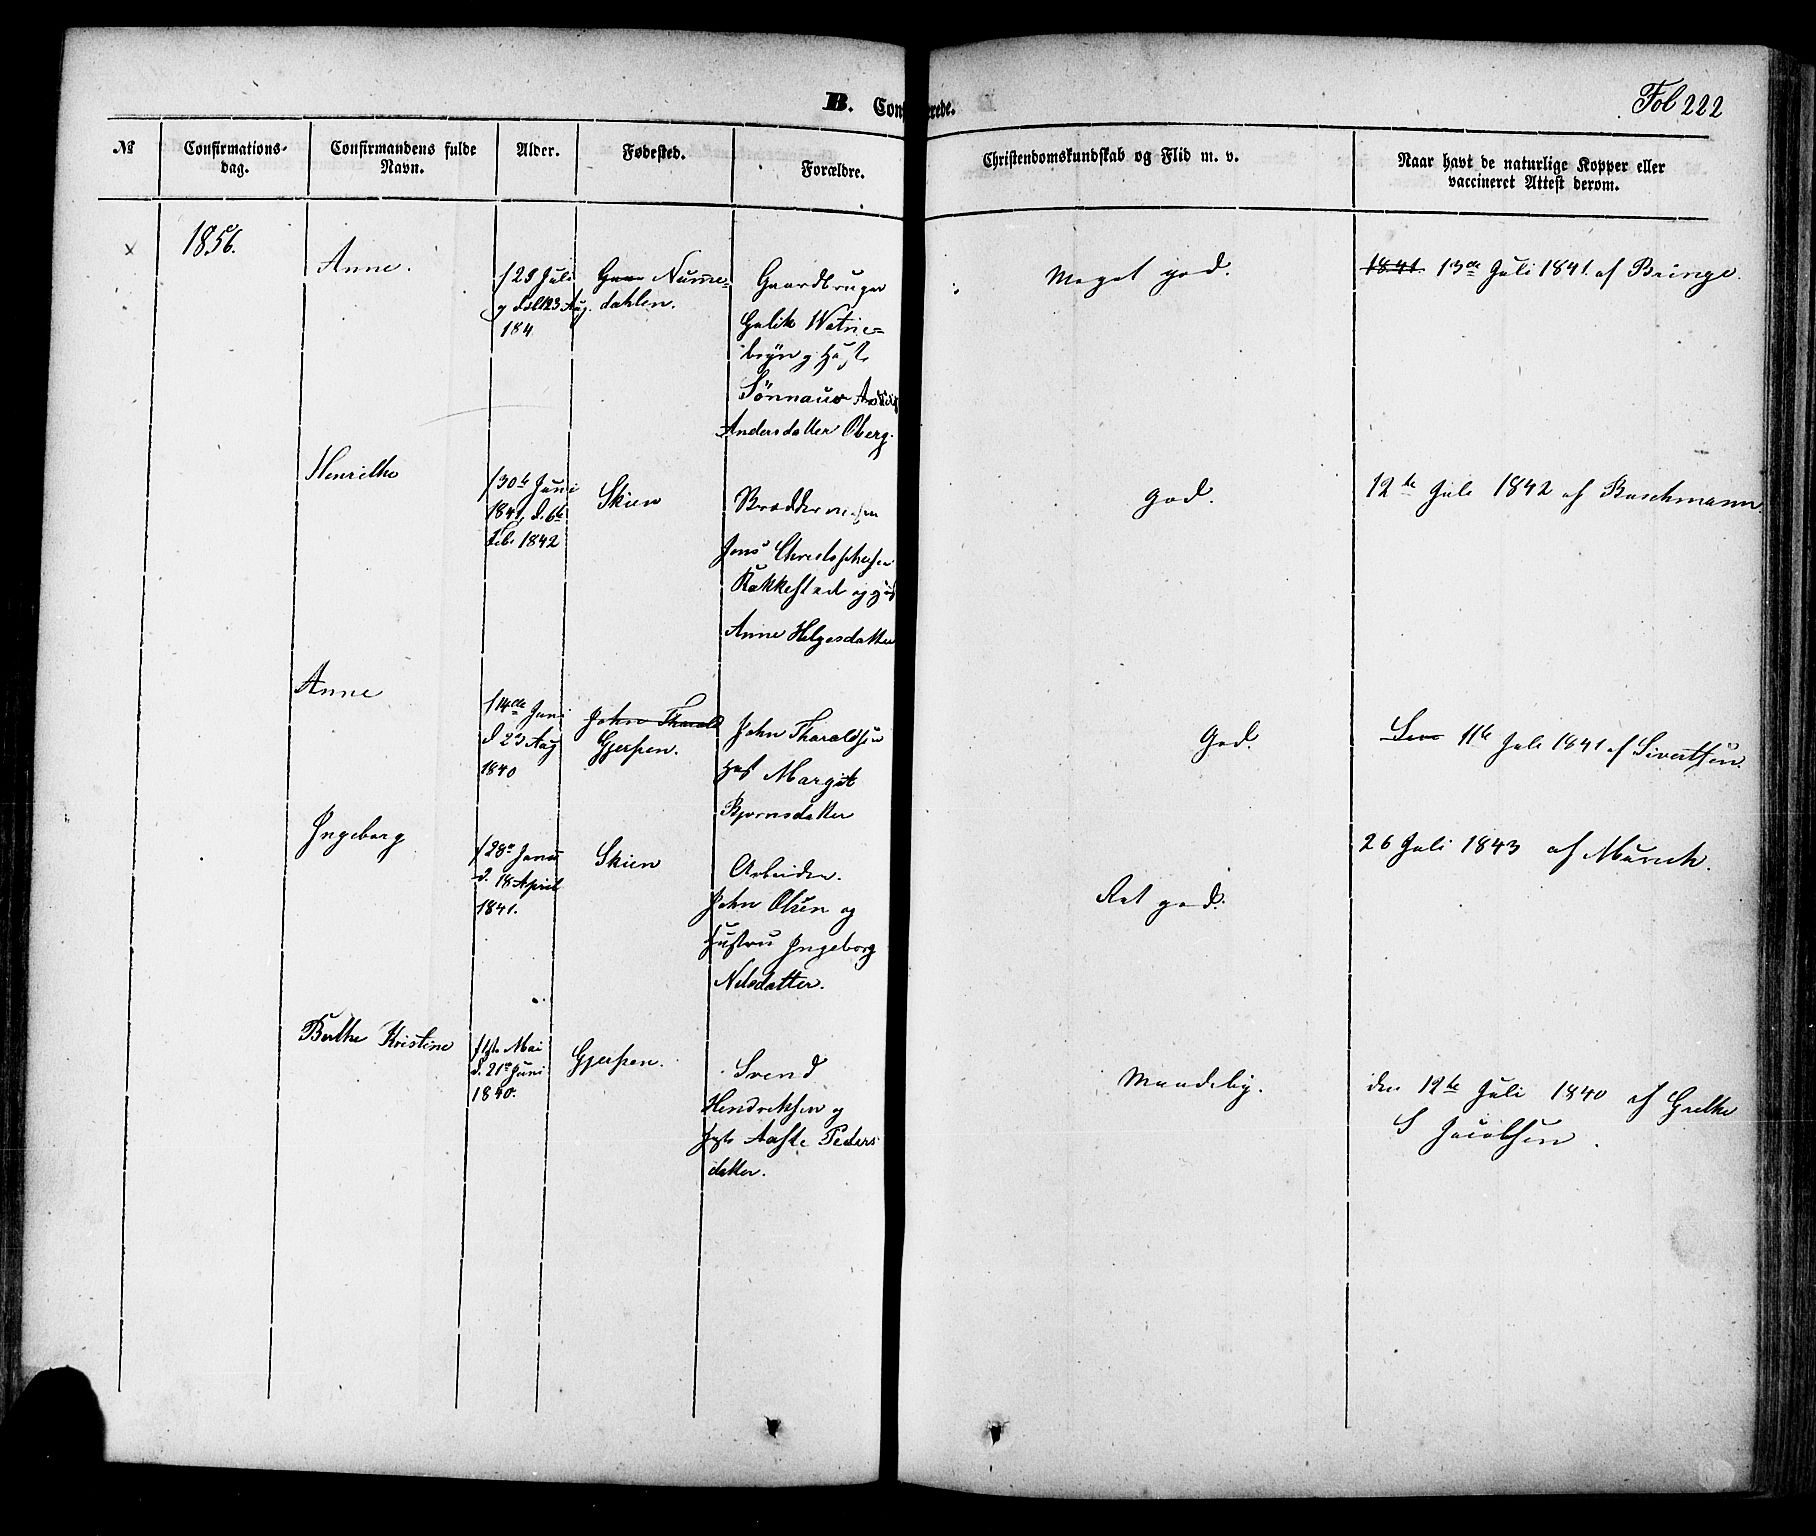 B. Confirmerede.
Fol 222
№ Confirmations-dag. Confirmandens fulde Navn. Alder. Fødested. Forældre. Christendomskundskab og Flid m. v. Naar havt de naturlige Kopper eller vaccineret Attest derom.
1856.
Anne.
f 29 Juli
23 Aug.
184
Nume-
dahlen.
Gaardbruger
Anders datter Oberg.
Meget god.
1841. 13de Juli 1841 af Bringe.
Henrethe
f 30te Juni
1841, d. 6te
Feb. 1842
Skien
Jens
Rakkestad og
Anne Helgesdatter
god.
12te Juli 1842 af Buschmann.
Anne
f 14de Juni
d 23 Aug
1840
John Thorald
Gjerpen.
John Tharaldsen
Margit
Bjørnsdatter
God.
11te Juli 1841 af Sivertsen.
Ingeborg
d. 18 April
1841.
Skien
Arbeider.
John Olsen og
Hustru Ingeborg
Nilsdatter.
Ret god.
26 Juli 1843 af Munch.
Berthe Kristine
Mai
d. 21e Juni
1840.
Gjerpen.
Svend
Hendriksen og
Aaste Peders
datter.
Maadelig.
den 12te Juli 1840 af Grethe
S Jacobsen.